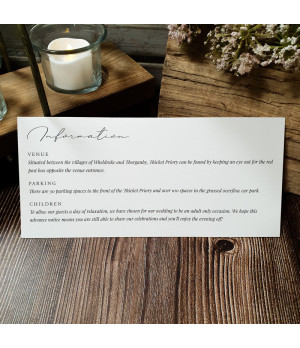 Information
VENUE
Situated between the villages of Wheldrake and Thorganby, Thicket Priory can be found by keeping an eye out for the red
post box opposite the venue entrance.
PARKING
There are 30 parking spaces to the front of the Thicket Priory and over 100 spaces in the grassed overflow car park.
CHILDREN
To allow our guests a day of relaxation, we have chosen for our wedding to be an adult only occasion. We hope this
advance notice means you are still able to share our celebrations and you'll enjoy the evening off!